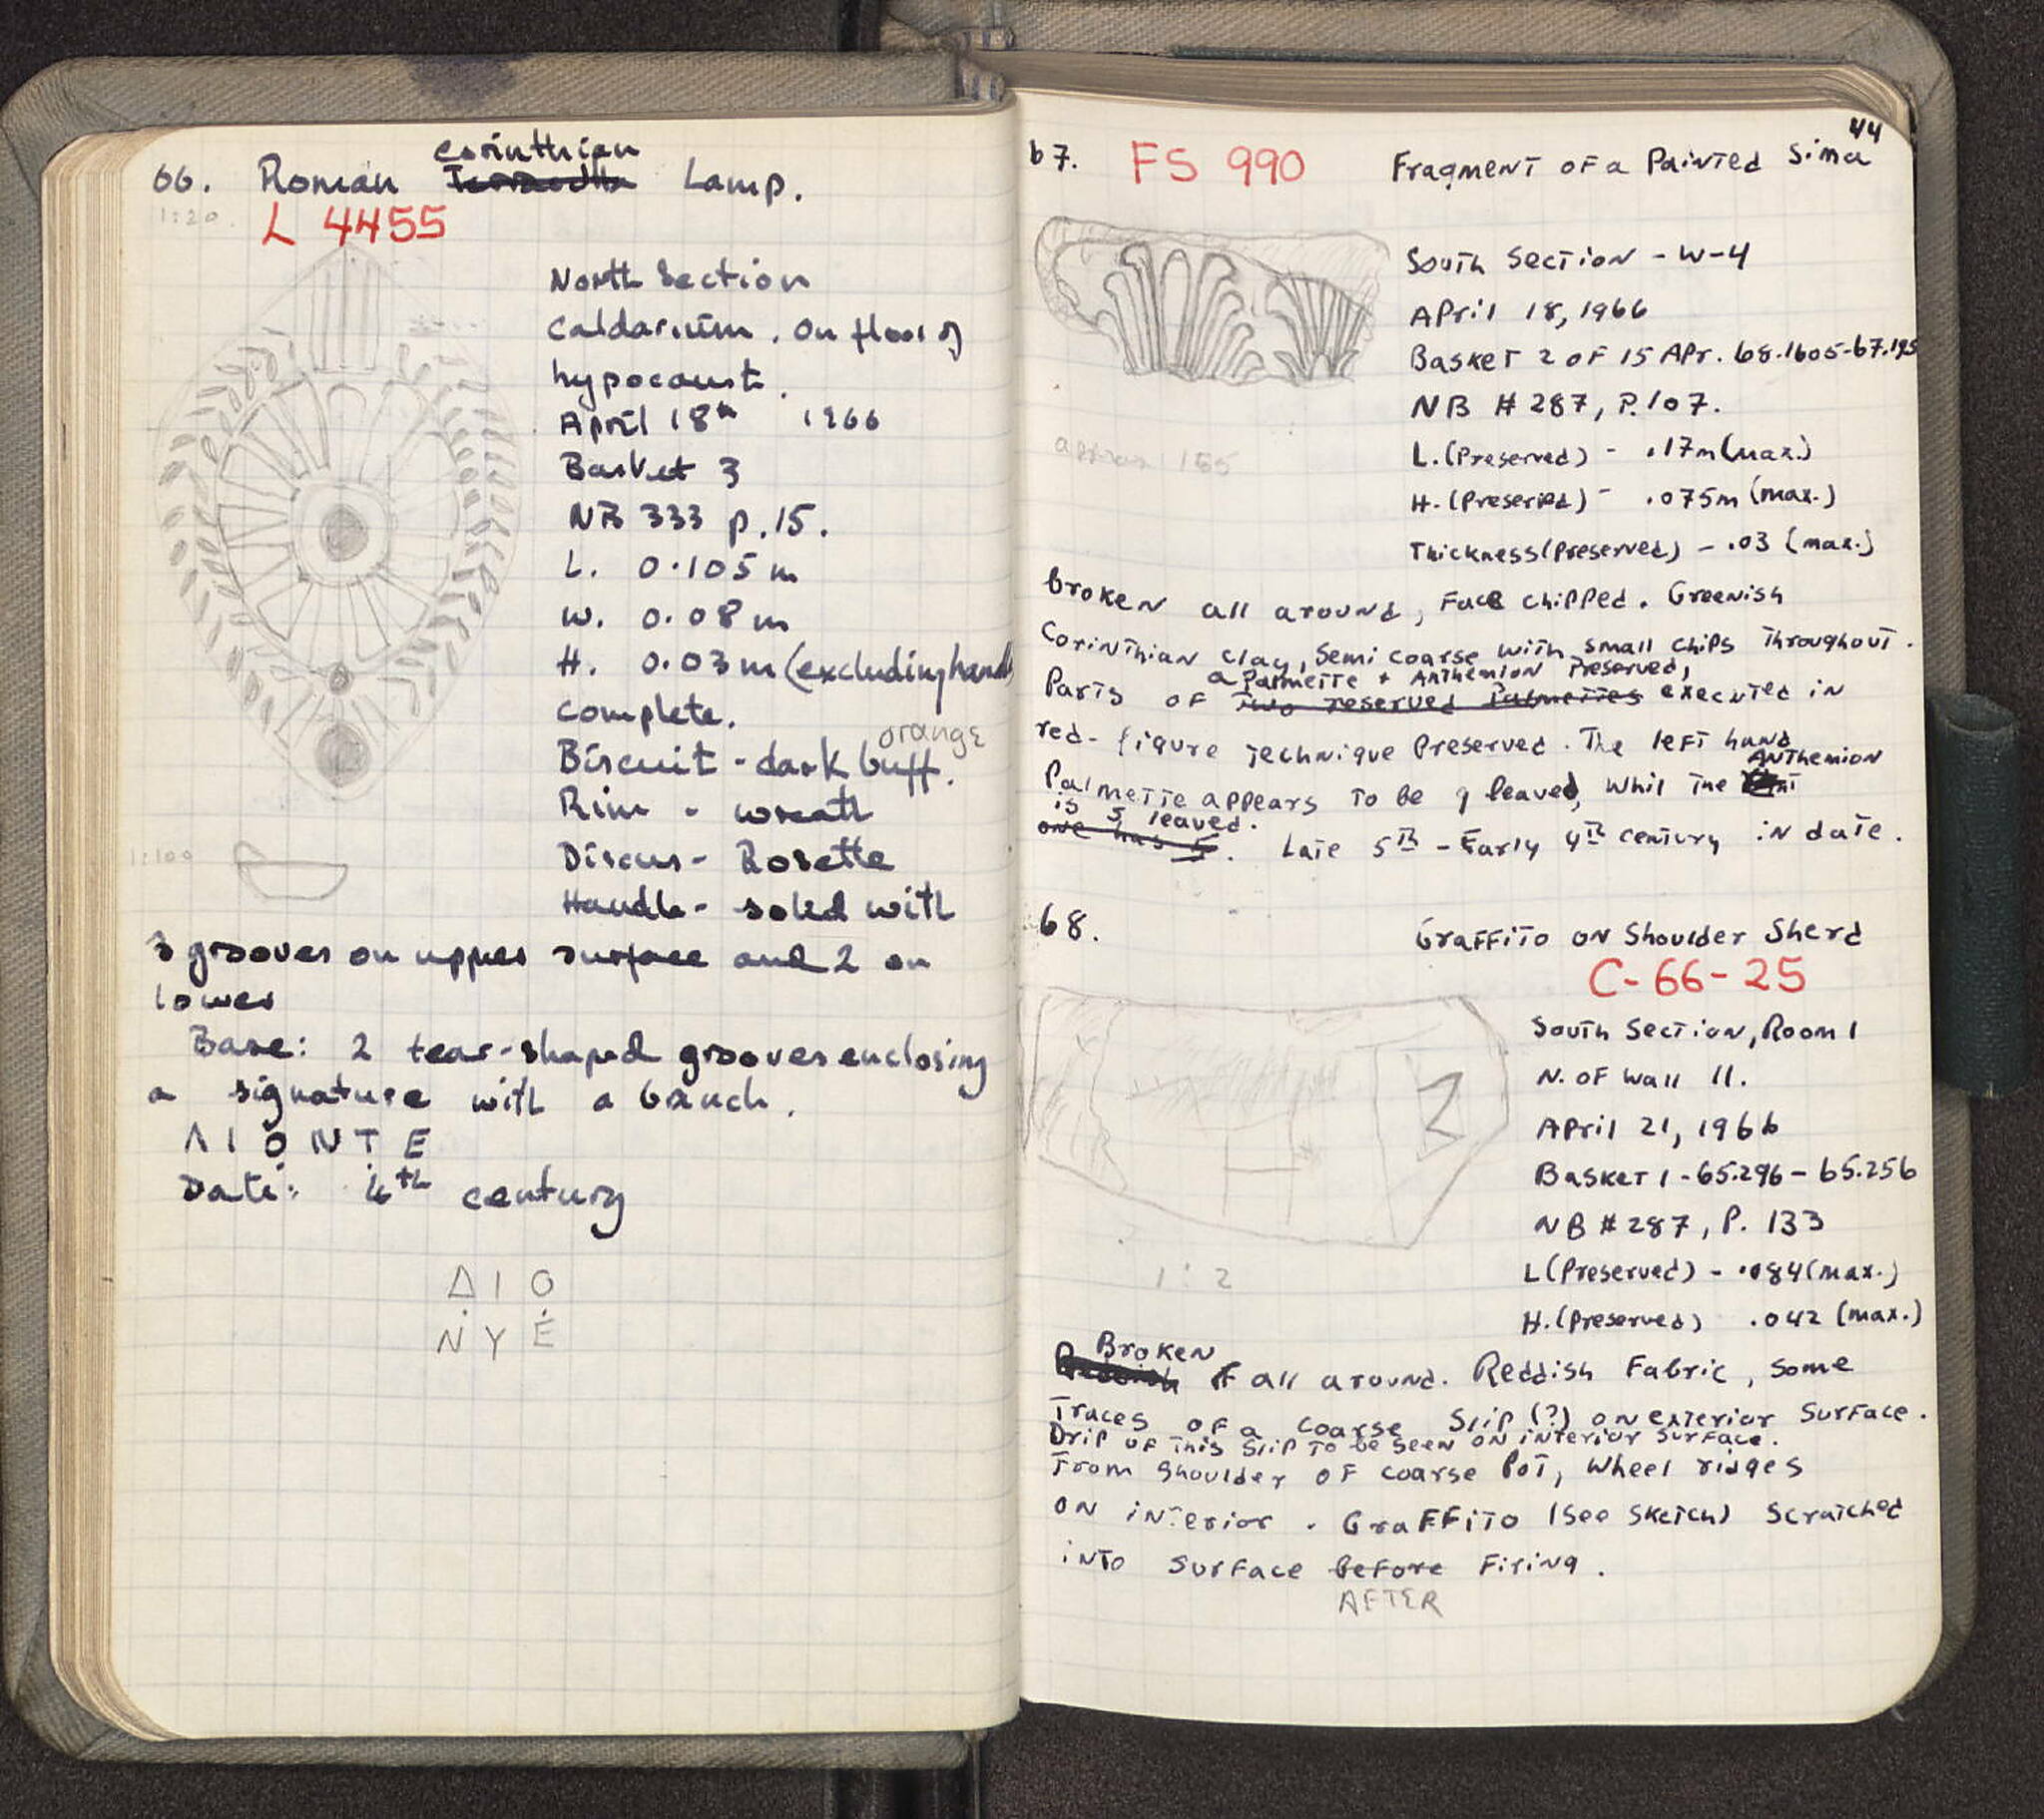 66. Roman Corinthian Lamp.
1:20
L 4455
North Section
Caldarium. On floor of
hypocaust.
April 18th 1966
Basket 3
NB 333 p.15.
L. 0.105 m
W. 0.08 m
H. 0.03 m (excluding handle
Complete.
orange
Biscuit - dark buff.
Rim - wreath
Discus - Rosette
1:100
Handle - solid with
3 grooves on upper surface and 2 on
lower
Base: 2 tear-shaped grooves enclosing
a signature with a branch.
Λ Ι Ο Ν Τ Ε
Date: 4th century
Δ Ι Ο
Ν Υ Ε
44
67. FS 990 Fragment of a Painted Sima
South Section - W-4
April 18, 1966
Basket 2 of 15 Apr. 68.1605-67.195
NB # 287, P. 107.
approx 1:65
L. (Preserved) - .17m (max.)
H. (Preserved) - .075m (max.)
Thickness (Preserved) - .03 (max.)
Broken all around, Face chipped. Greenish
Corinthian clay, Semi coarse with small chips throughout.
a Palmette + Anthemion Preserved,
Parts of Two reserved Palmettes executed in
red-figure technique Preserved. The left hand
Anthemion
Palmette appears to be 9 leaved, whil the
is 5 leaved.
one has 5. Late 5th - Early 4th century in date.
68. Graffito on Shoulder Sherd
C-66-25
South Section, Room 1
N. of Wall 11.
April 21, 1966
Basket 1 - 65.296 - 65.256
NB # 287, P. 133
L (Preserved) - .084 (max.)
1:2
H. (Preserved) .042 (max.)
Broken
all around. Reddish Fabric, some
Traces of a coarse Slip (?) on exterior surface.
Drip of this slip to be seen on interior surface.
From shoulder of coarse Pot, wheel ridges
on interior. Graffito (See Sketch) scratched
into surface before firing.
AFTER